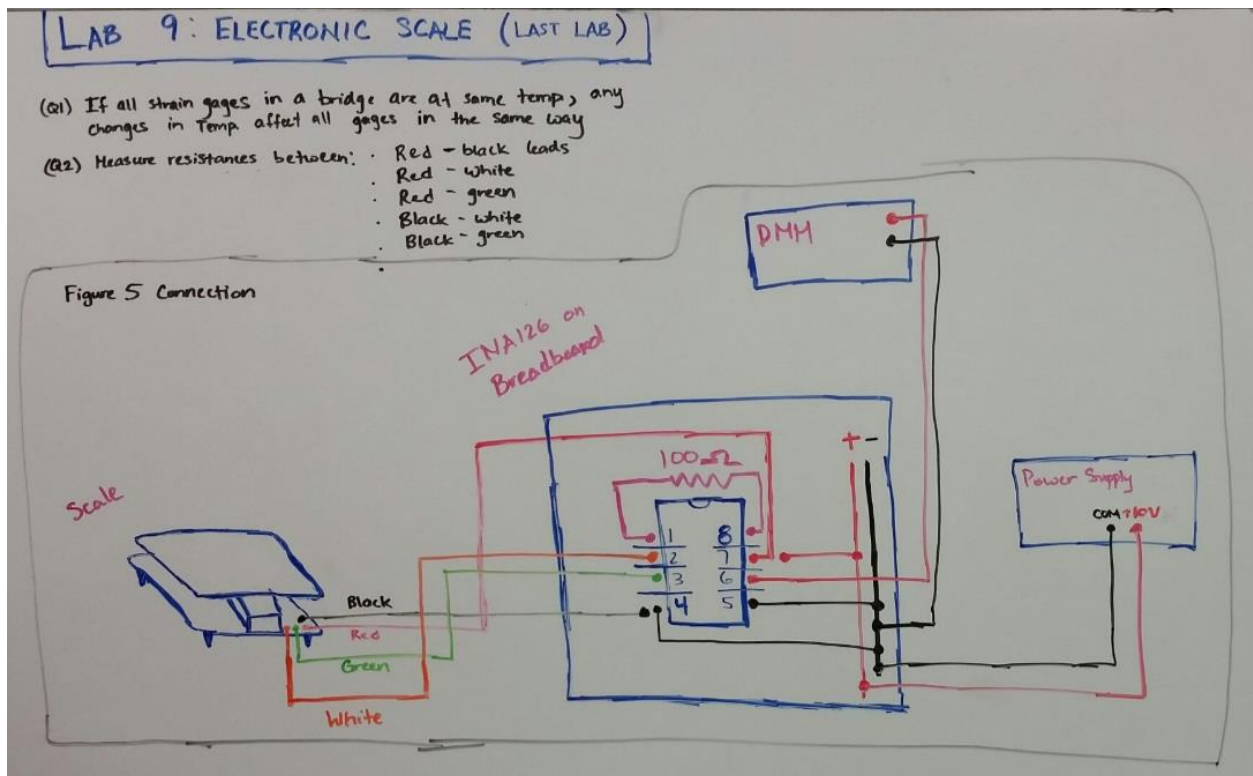 LAB 9: ELECTRONIC SCALE (LAST LAB)
(Q1) If all strain gages in a bridge are at same temp, any
changes in Temp affect all gages in the same way
(Q2) Measure resistances between: · Red - black leads
· Red - white
· Red - green
· Black - white
· Black - green
·
Figure 5 Connection
DMM
INA126 on
Breadboard
+ -
100Ω
Power Supply
COM +10V
Scale
1 8
2 7
3 6
4 5
Black
Red
Green
White